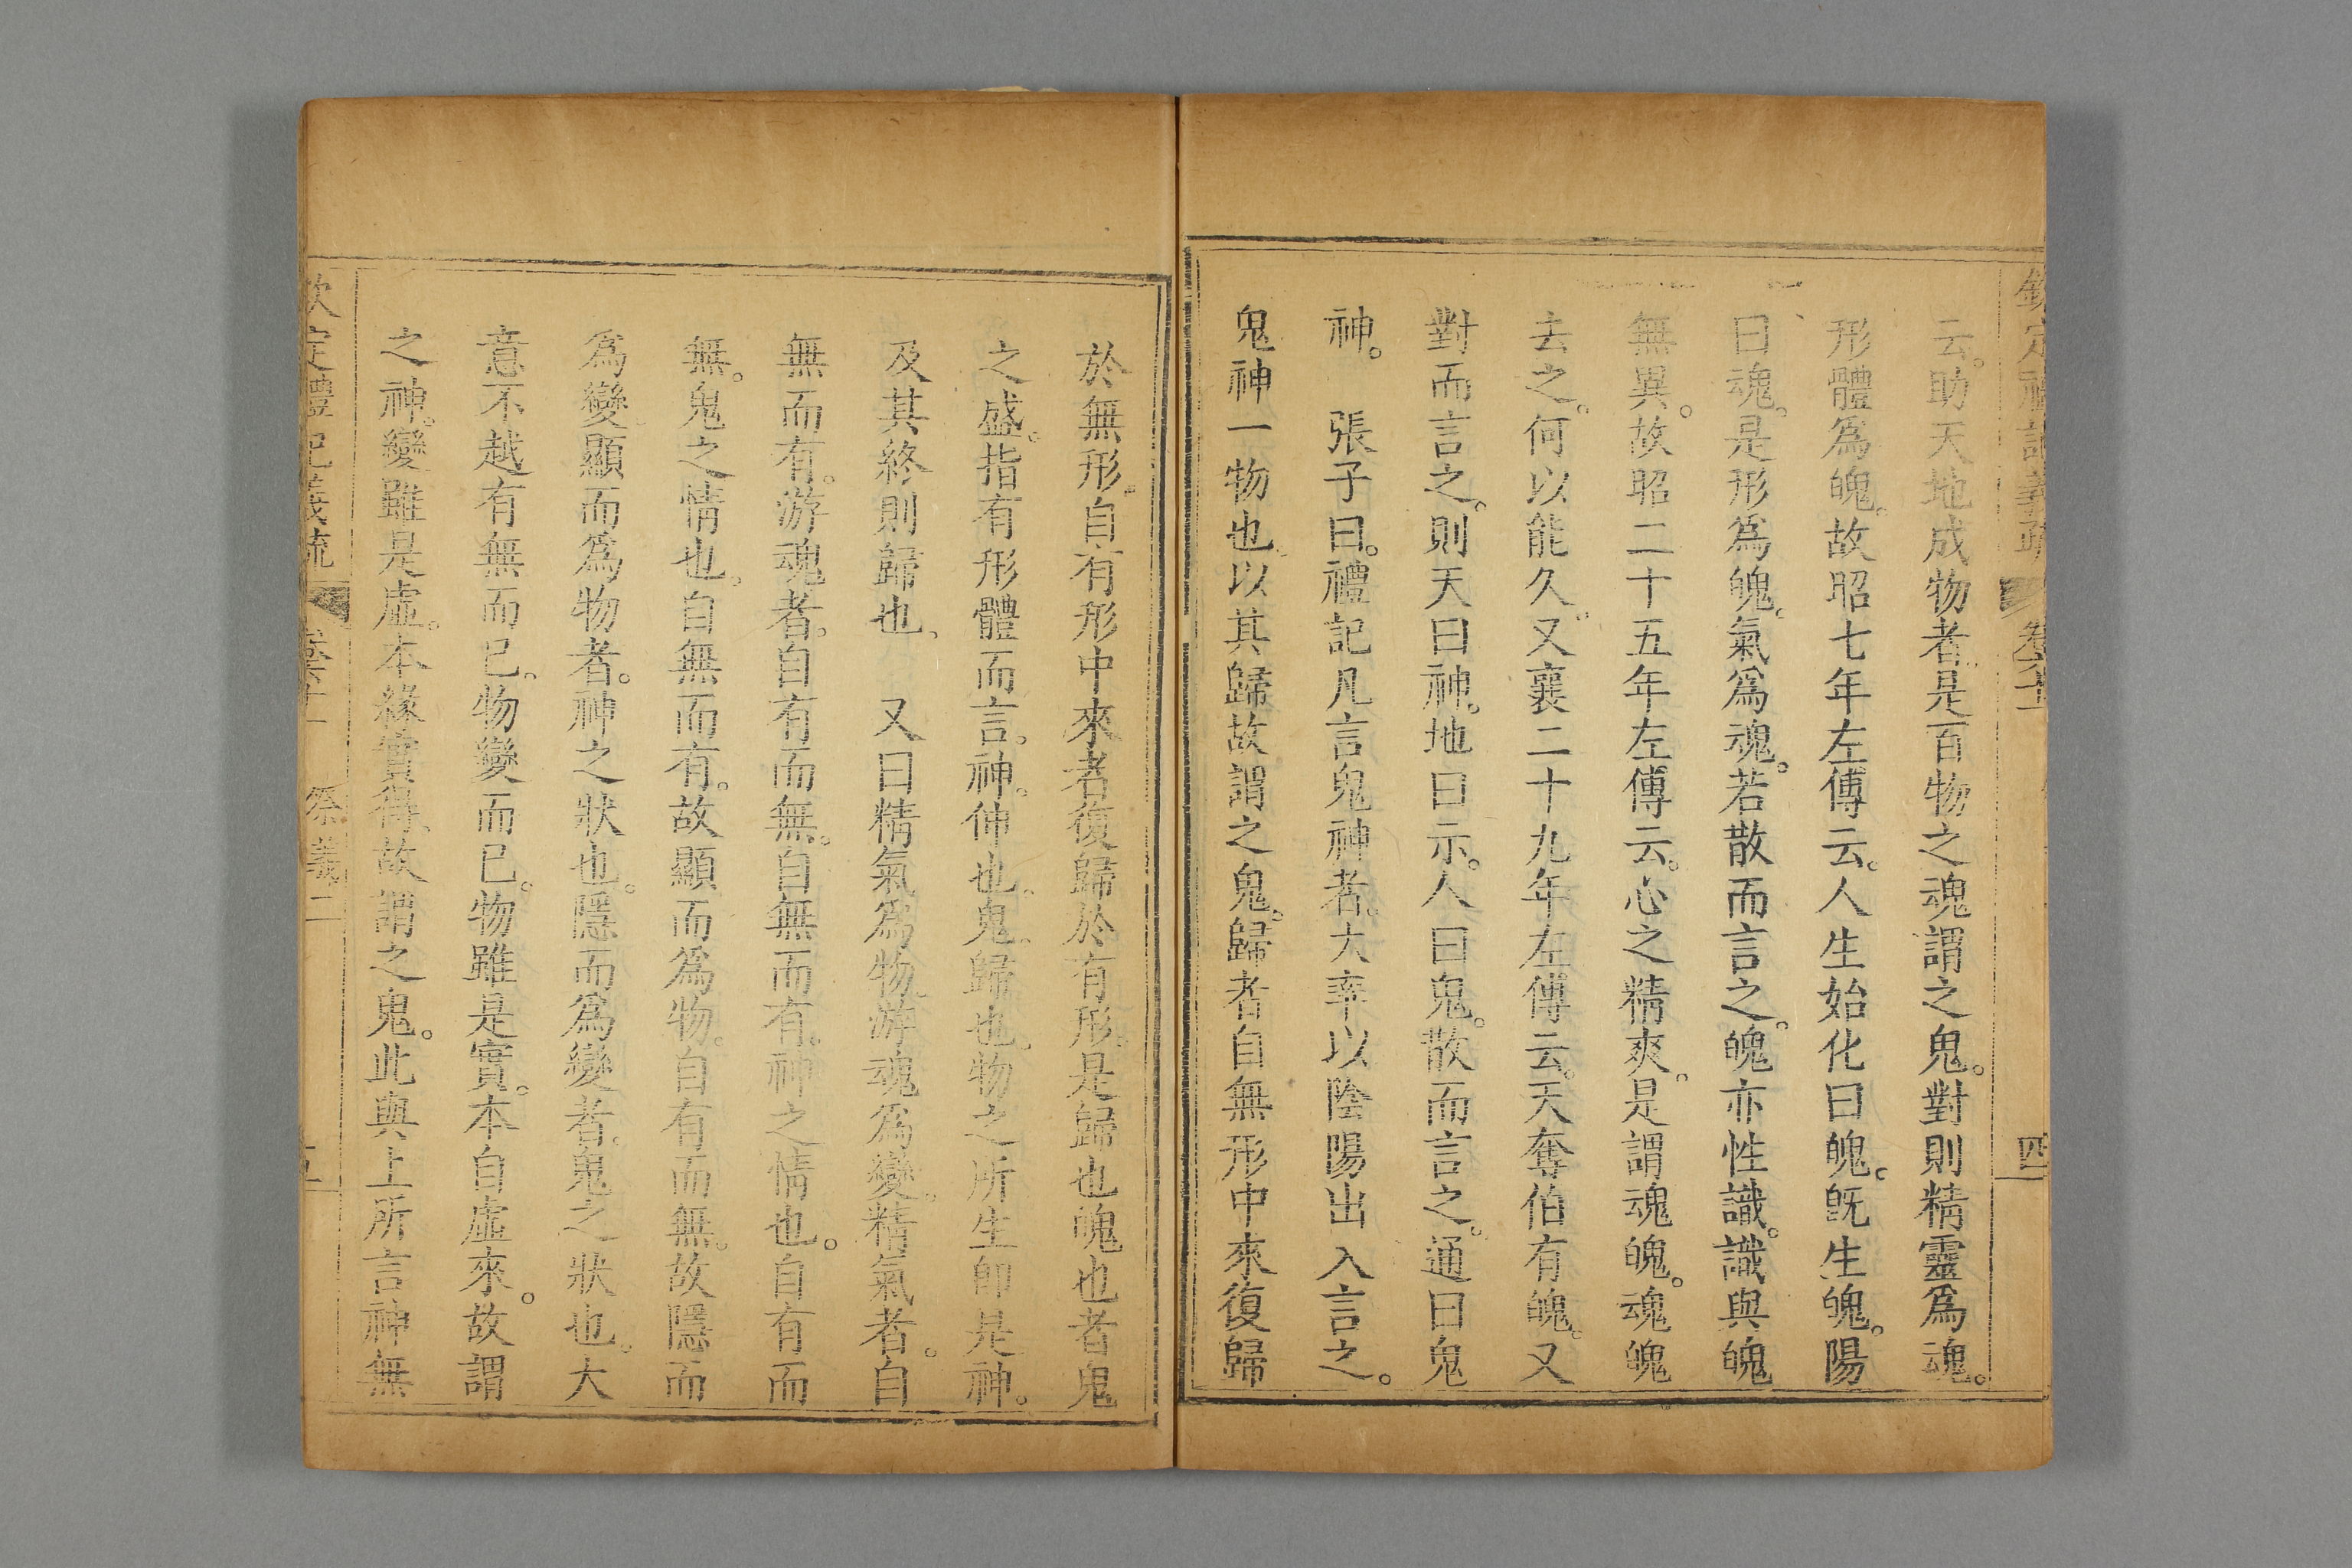 欽定禮記義疏 卷六十一 四
云。助天地成物者是百物之魂謂之鬼。對則精靈爲魂。
形體爲魄。故昭七年左傳云。人生始化曰魄。旣生魄。陽
曰魂。是形爲魄。氣爲魂。若散而言之。魄亦性識。識與魄
無異。故昭二十五年左傳云。心之精爽。是謂魂魄。魂魄
去之。何以能久。又襄二十九年左傳云。天奪伯有魄。又
對而言之。則天曰神。地曰示。人曰鬼。散而言之。通曰鬼
神。 張子曰。禮記凡言鬼神者。大率以陰陽出入言之。
鬼神一物也。以其歸故謂之鬼。歸者自無形中來復歸
於無形。自有形中來者復歸於有形。是歸也魄也者鬼
之盛。指有形體而言。神。伸也。鬼。歸也。物之所生卽是神。
及其終則歸也。 又曰精氣爲物。游魂爲變。精氣者。自
無而有。游魂者。自有而無。自無而有。神之情也。自有而
無。鬼之情也。自無而有。故顯而爲物。自有而無。故隱而
爲變。顯而爲物者。神之狀也。隱而爲變者。鬼之狀也。大
意不越有無而已。物變而已。物雖是實。本自虛來。故謂
之神。變雖是虛。本緣實得。故謂之鬼。此與上所言神無
欽定禮記義疏 卷六十一 祭義二 五